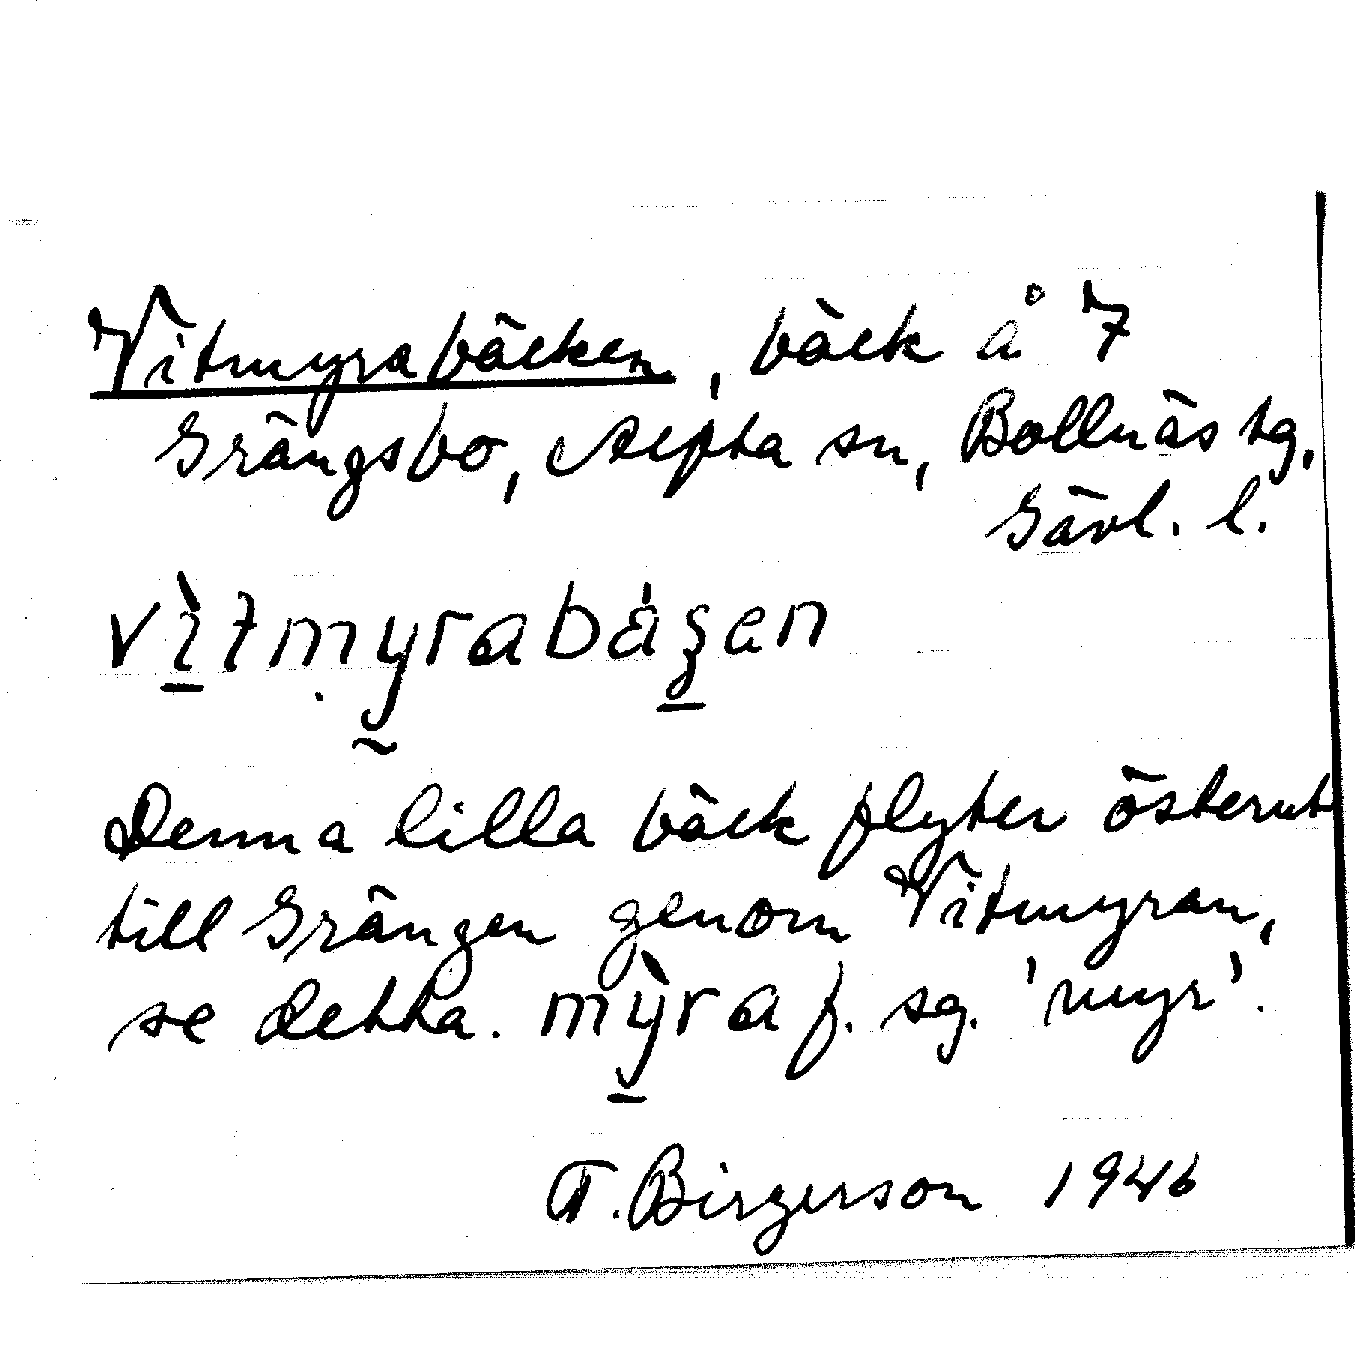 Vitmyrabäcken, bäck å 7
Grängsbo, Alfta sn, Bollnäs tg,
Gävl. l.
Denna lilla bäck flyter österut
till Grängen genom Vitmyran,
se detta. mỳ̠ra f. sg. 'myr'.
T. Birgerson 1946